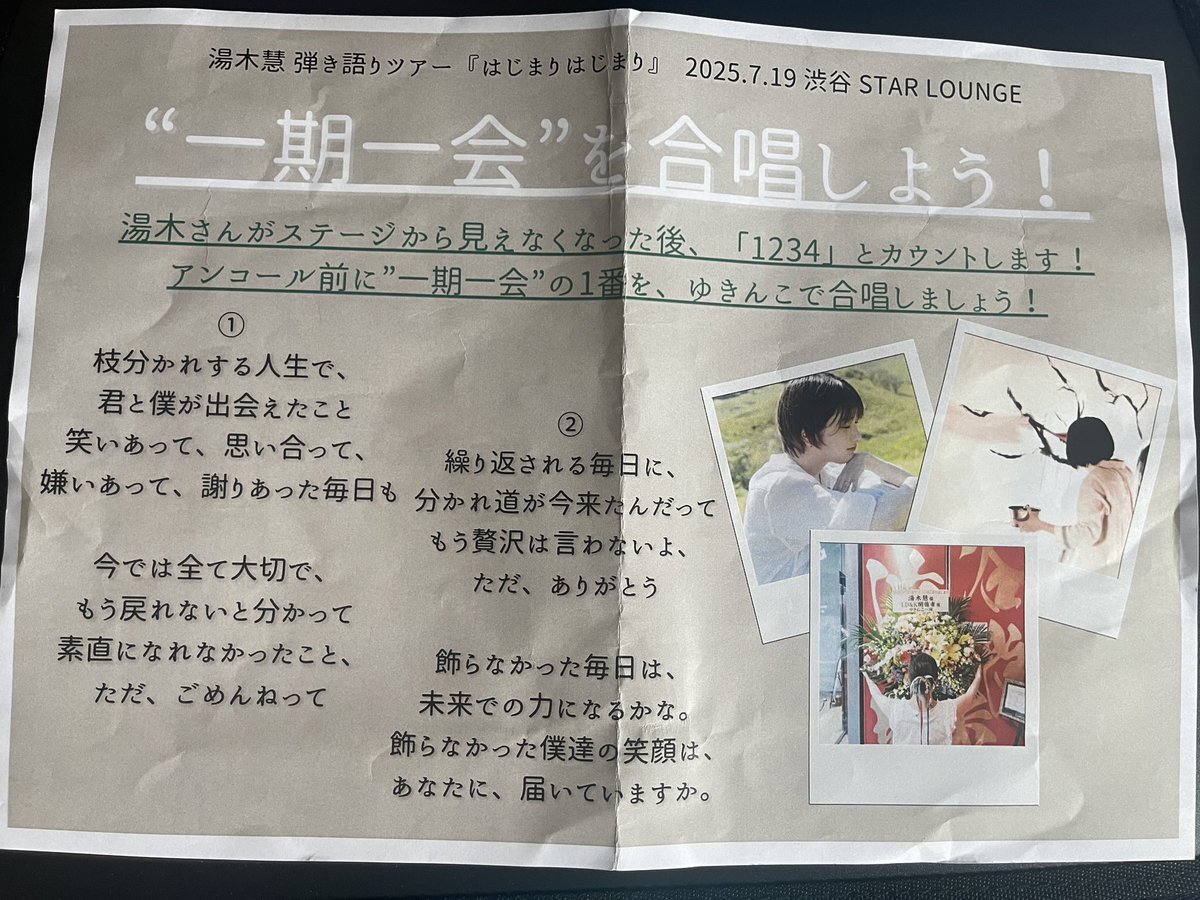 湯木慧 弾き語りツアー『はじまりはじまり』 2025.7.19 渋谷 STAR LOUNGE
“一期一会”を合唱しよう！
湯木さんがステージから見えなくなった後、「1234」とカウントします！
アンコール前に”一期一会”の1番を、ゆきんこで合唱しましょう！
①
枝分かれする人生で、
君と僕が出会えたこと
笑いあって、思い合って、
嫌いあって、謝りあった毎日も
今では全て大切で、
もう戻れないと分かって
素直になれなかったこと、
ただ、ごめんねって
②
繰り返される毎日に、
分かれ道が今来たんだって
もう贅沢は言わないよ、
ただ、ありがとう
飾らなかった毎日は、
未来での力になるかな。
飾らなかった僕達の笑顔は、
あなたに、届いていますか。
湯木慧様